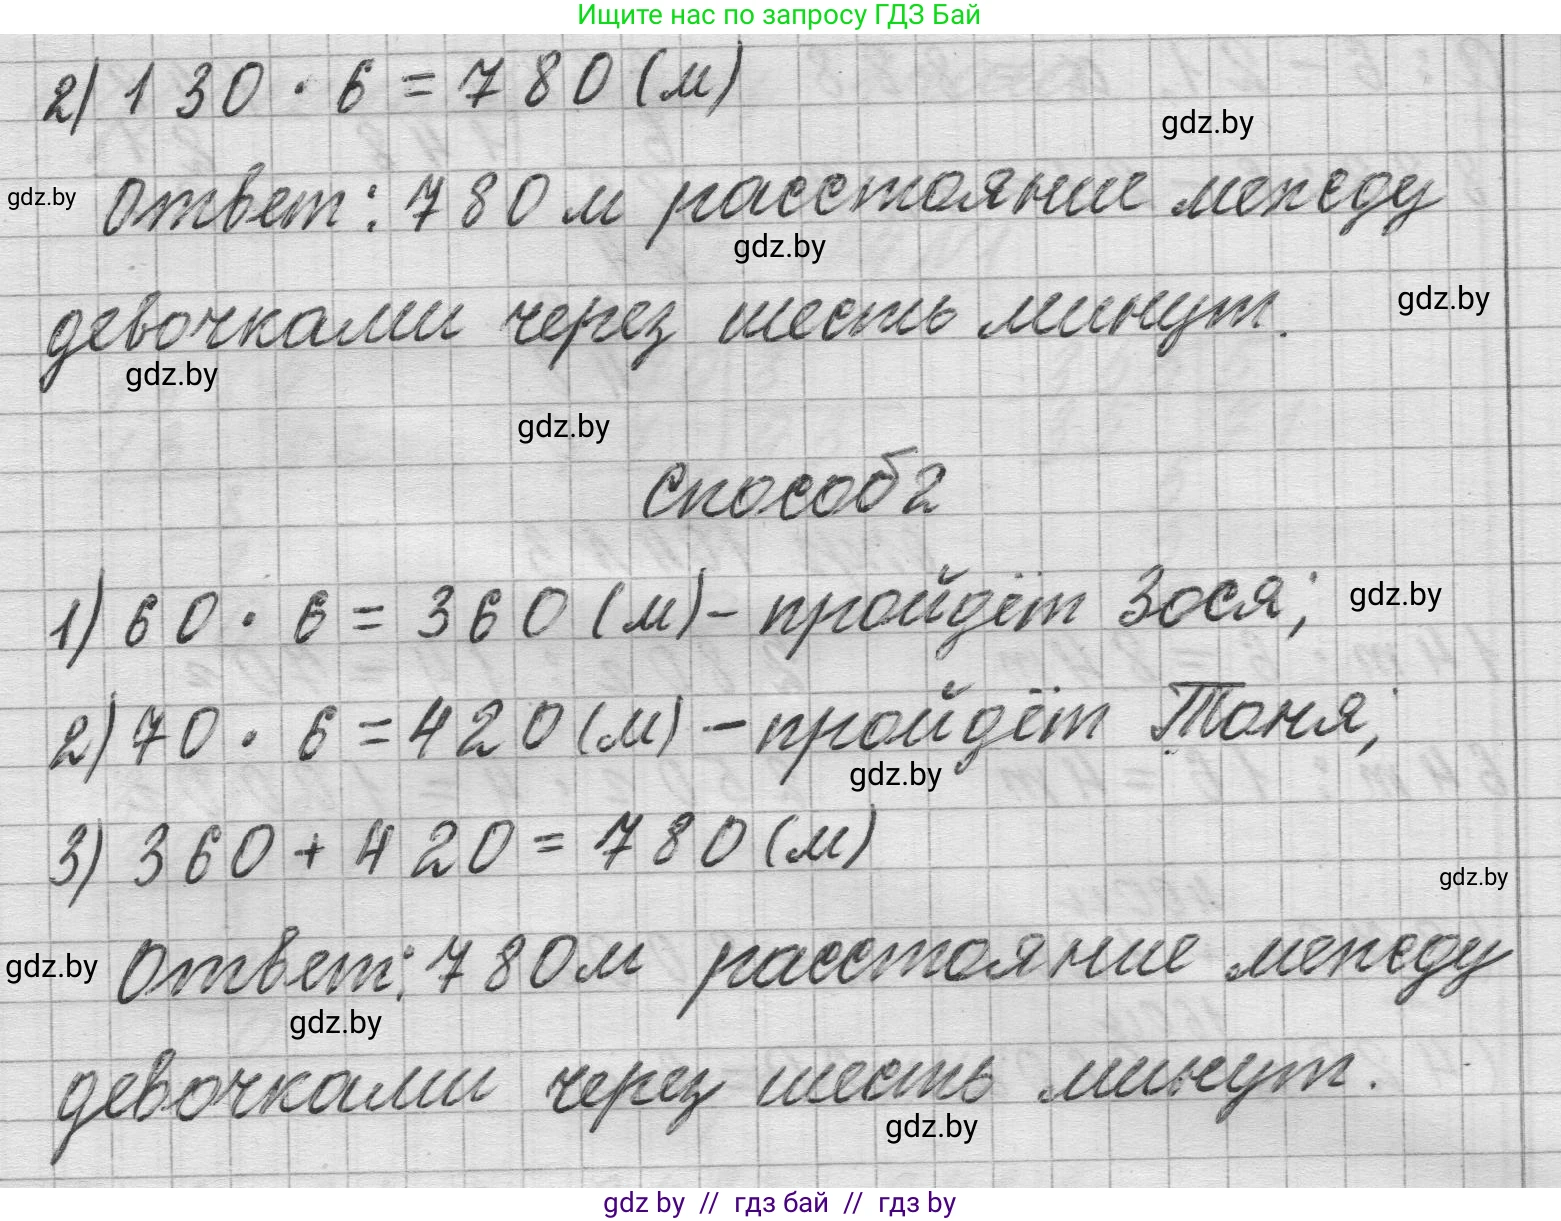 Ищите нас по запросу ГДЗ Бай
2) 130 · 6 = 780 (м)
gdz.by
gdz.by
Ответ: 780 м расстояние между
gdz.by
gdz.by
девочками через шесть минут.
gdz.by
gdz.by
Способ 2
1) 60 · 6 = 360 (м) - пройдёт Зося;
gdz.by
2) 70 · 6 = 420 (м) - пройдёт Тоня;
gdz.by
3) 360 + 420 = 780 (м)
gdz.by
gdz.by
Ответ: 780 м расстояние между
gdz.by
девочками через шесть минут.
gdz.by
gdz by // гдз бай // гдз by